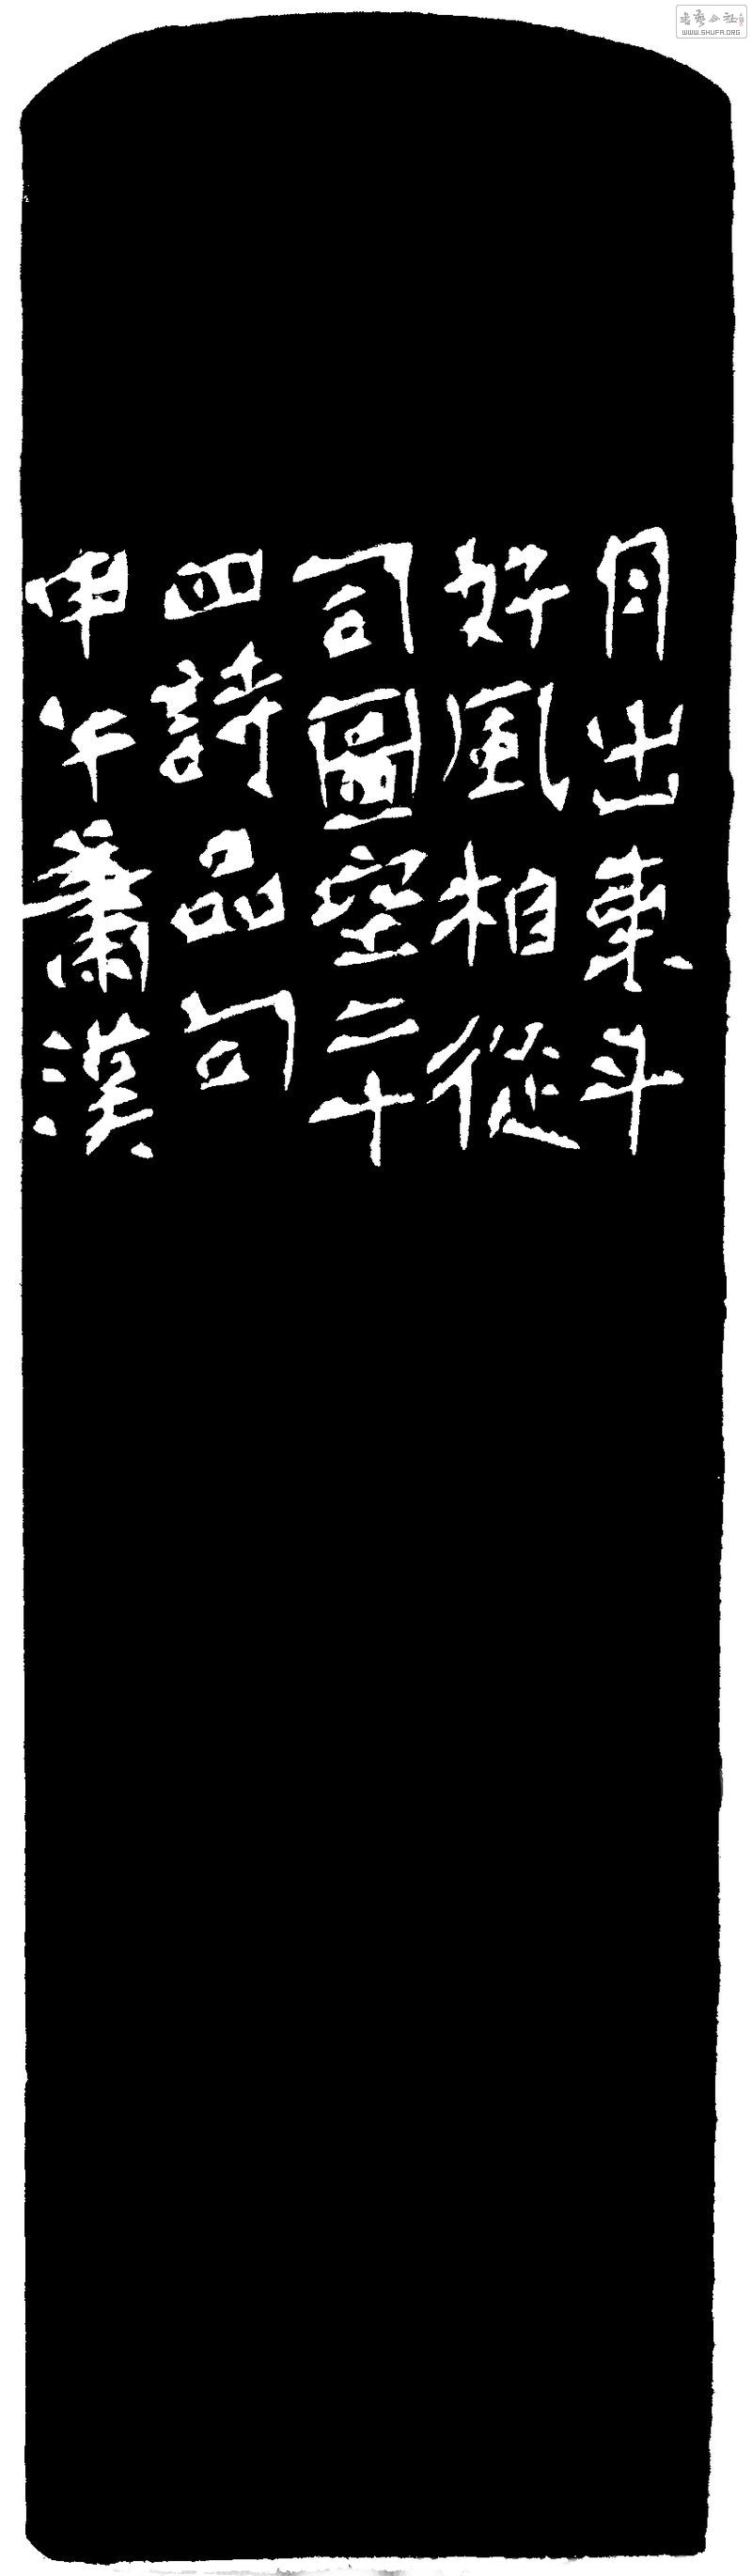 月出東斗
好風相從
司圖空二十
四詩品句
甲午蕭漢
WWW.SHUFA.ORG